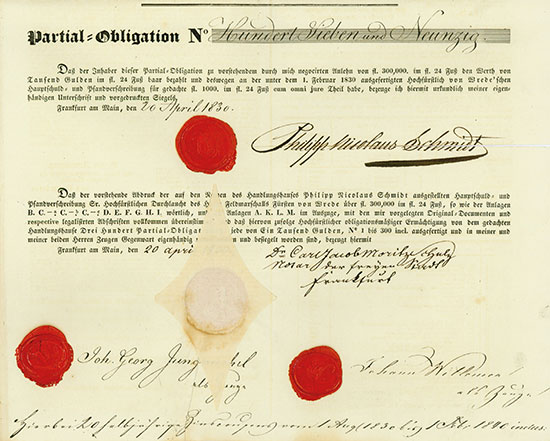 Partial-Obligation No Hundert Sieben und Neunzig.
Daß der Inhaber dieser Partial-Obligation zu vorstehendem durch mich negocirten Anlehn von fl. 300,000, im fl. 24 Fuß den Werth von
Tausend Gulden im fl. 24 Fuß baar bezahlt und deswegen an der unter dem 1. Februar 1830 ausgefertigten Hochfürstlich von Wrede'schen
Hauptschuld- und Pfandverschreibung für gedachte fl. 1000, im fl. 24 Fuß cum omni jure Theil habe, bezeuge ich hiermit urkundlich meiner eigen-
händigen Unterschrift und vorgedruckten Siegels.
Frankfurt am Main, den 20 April 1830.
Philipp Nicolaus Schmidt
Daß der vorstehende Abdruck der auf den Namen des Handlungshauses Philipp Nicolaus Schmidt ausgestellten Hauptschuld- und
Pfandverschreibung Sr. Hochfürstlichen Durchlaucht des Feldmarschalls Fürsten von Wrede über fl. 300,000 im fl. 24 Fuß, so wie der Anlagen
B. C. D. E. F. G. H. I. wörtlich, und Anlagen A. K. L. M. im Auszuge, mit den mir vorgelegten Original-Documenten und
respective legalisirten Abschriften vollkommen übereinstimme das hiervon zufolge Hochfürstlicher obligationsmäßiger Ermächtigung von dem gedachten
Handlungshause Drei Hundert Partial-Obligationen jede von Ein Tausend Gulden, No 1 bis 300 incl. ausgefertigt und in meiner und
meiner beiden Herren Zeugen Gegenwart eigenhändig und besiegelt worden sind, bezeugt hiermit
Frankfurt am Main, den 20 April
Dr. Carl Jacob Moritz Schulz
Notar der freyen Stadt
Frankfurt
Joh. Georg Jung
als Zeuge
Johann
als Zeuge
Hierbei 20 halbjährige Zinscoupons vom 1 Aug 1830 bis 1 Feb. 1840 inclus.